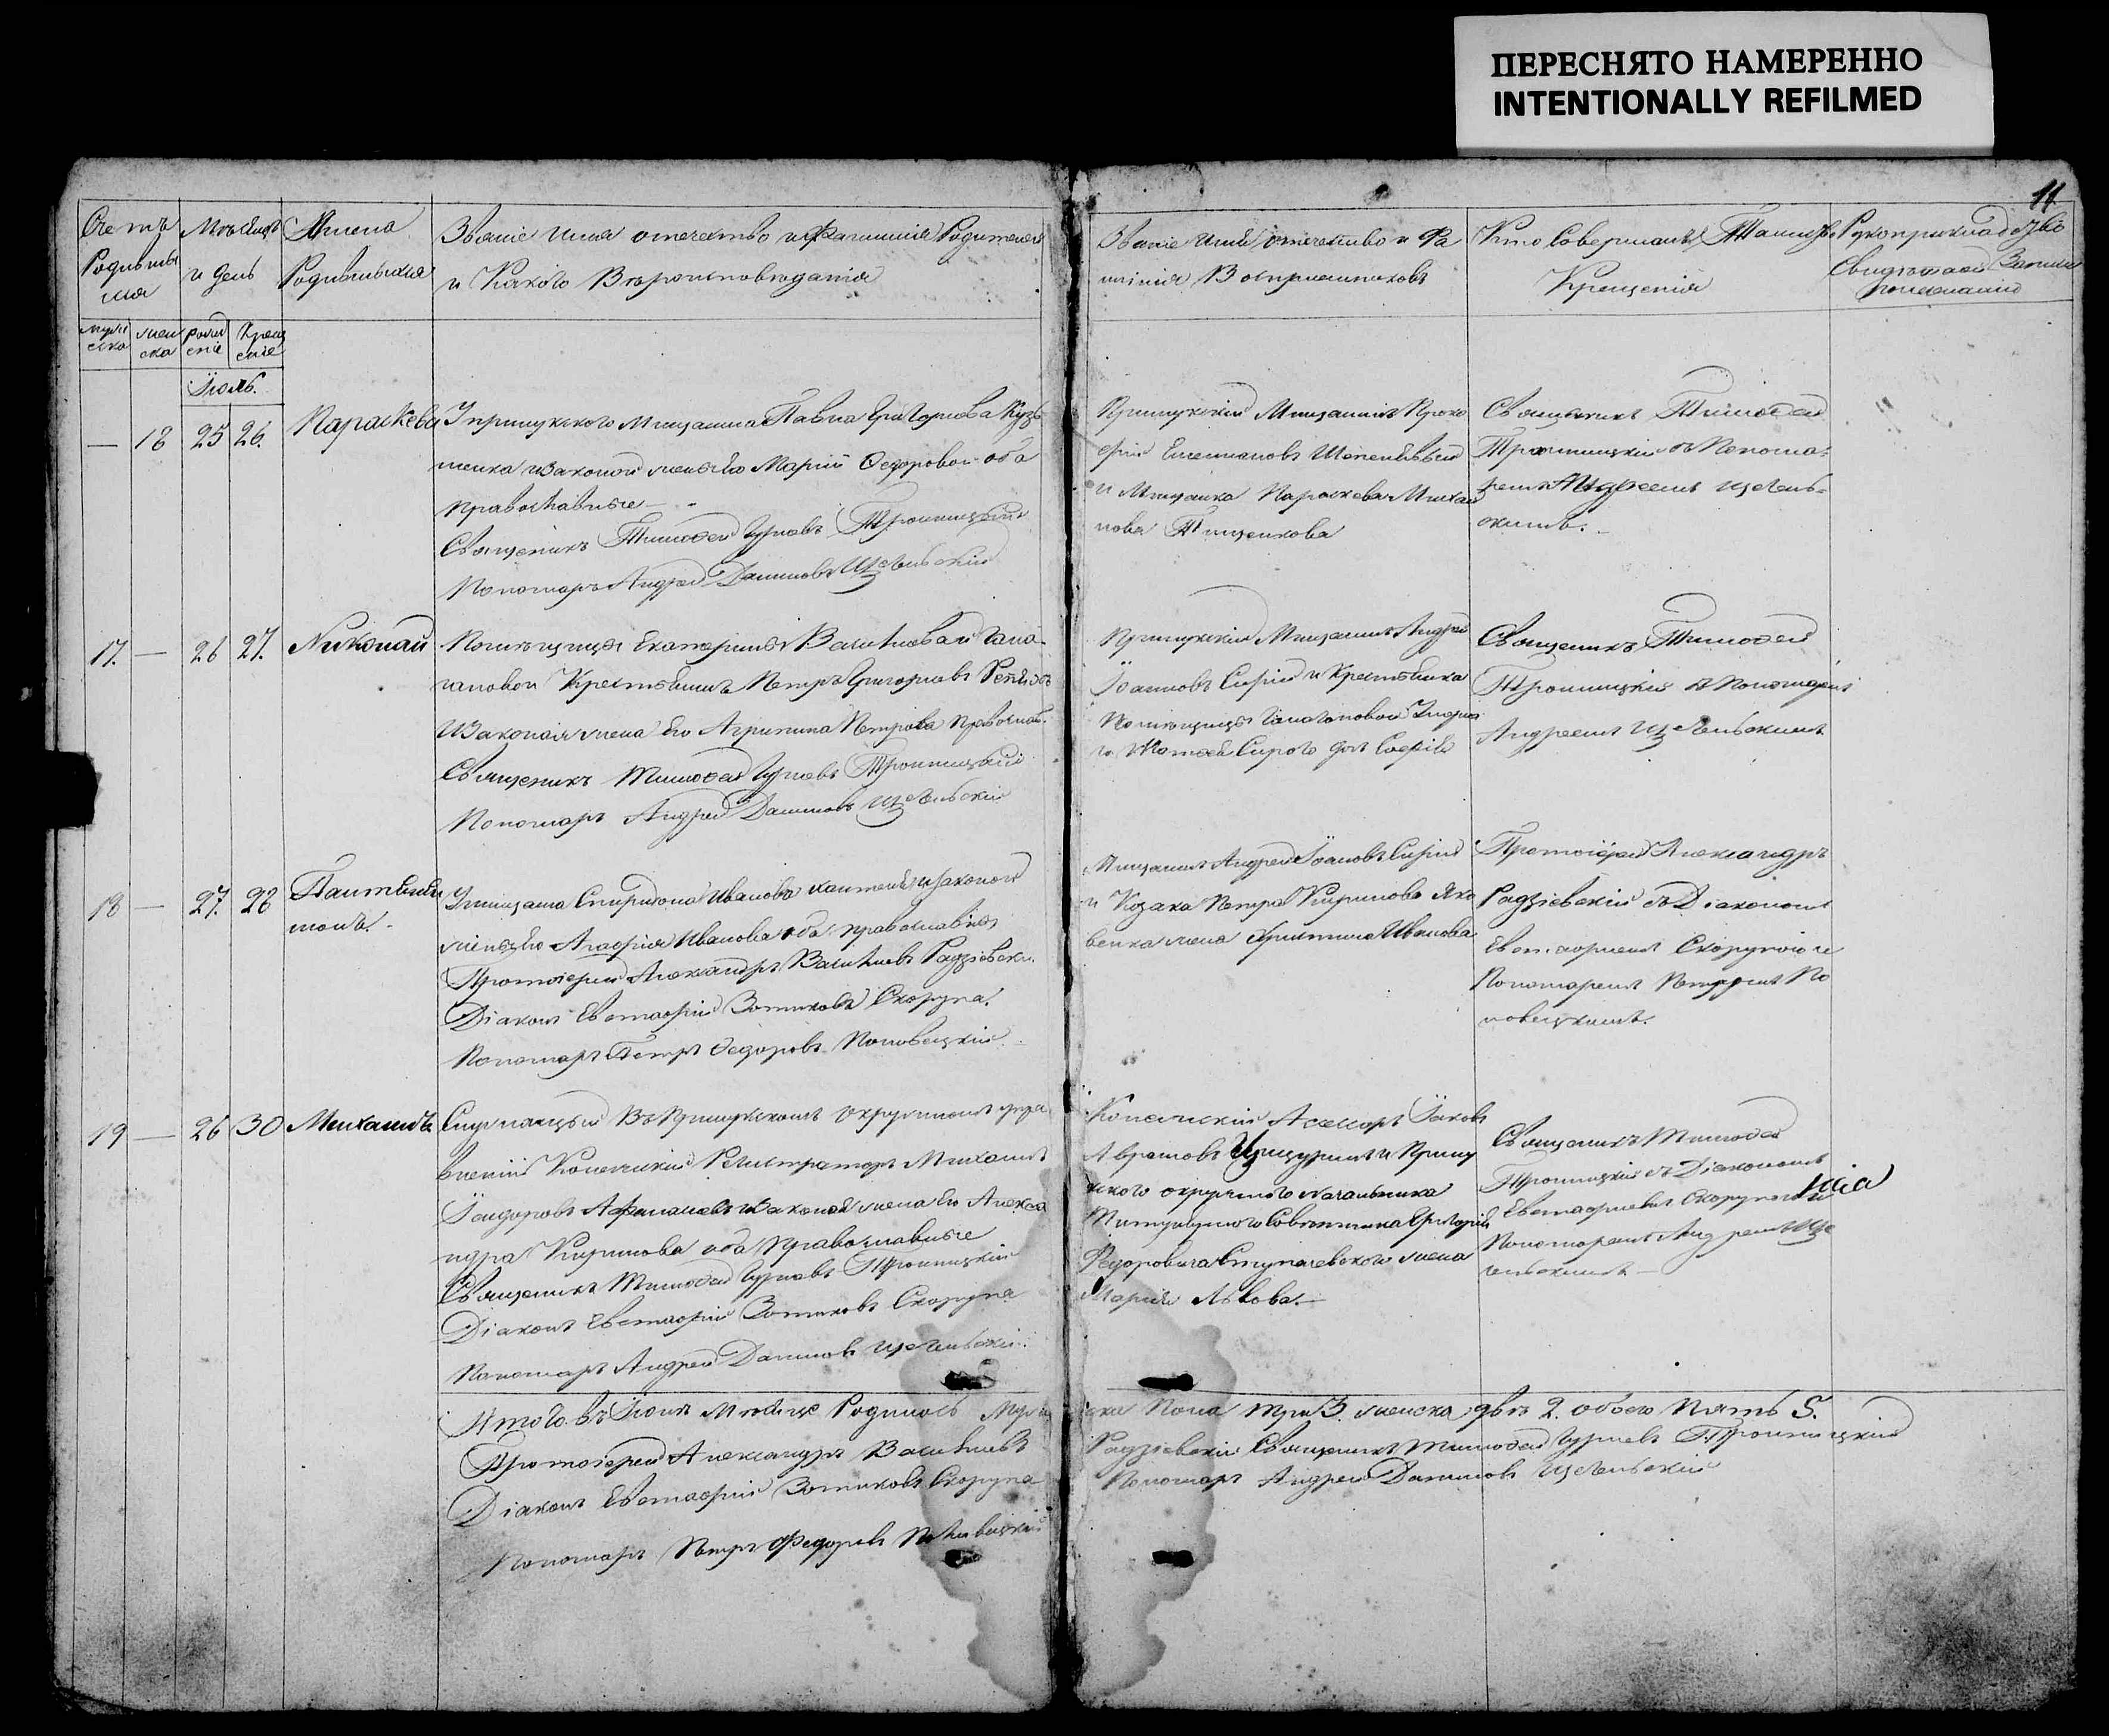 ПЕРЕСНЯТО НАМЕРЕННО
INTENTIONALLY REFILMED
11
Счетъ
Родившихся
Мѣсяцъ
и день
Имена
Родившихся
Званіе имя отечество и Фамилія Родителей
и Какого Вѣроисповѣданія
Званіе имя отечество и Фа
милія Воспріемниковъ
Кто Совершалъ Таинство
Крещенія
Рукоприкладство
Свидѣтелей Записи
по желанію
муже
ска
жен
ска
рожд
еніе
Крещ
еніе
Іюль.
— 18 25 26. Параскева
У прилукского Мещанина Павла Григорьева Кузь
менка и законой жены его Маріи Федоровой оба
православные
Священикъ Тимофей Гурьевъ Троицкій
Пономарь Андрей Даниловъ
Прилукскій Мещанинъ Проко
фій
и Мещанка Параскева Михаи
лова Тищенкова
Священикъ Тимофей
Троицкій съ Понома
ремъ Андреемъ
17. — 26 27. Николай
Помѣщицы Екатерины Васильевой Гала
гановой Крестьянинъ Петръ Григорьевъ
и Законая жена его Агрипина Петрова православ.
Священикъ Тимофей Гурьевъ Троицкій
Пономарь Андрей Даниловъ
Прилукскій Мещанинъ Андрей
Іоановъ Сирій и Крестьянка
Помѣщицы Галагановой
Сирого дочь Софія
Священикъ Тимофей
Троицкій съ Пономаремъ
Андреемъ
18 — 27. 28 Пантелей
монъ.
У мещанина Спиридона Иванова и законой
жены его Агафіи Ивановой оба православные
Протоіерей Александръ Васильевъ Радзіевскій
Діаконъ Евстафій Зотиковъ Скорупа.
Пономарь Петръ Федоровъ
Мещанинъ Андрей Іоановъ Сирій
и Козака Петра Кирилова Яко
венка жена Христина Иванова
Протоіерей Александръ
Радзіевскій съ Діакономъ
Евстафіемъ Скорупою и
Пономаремъ Петромъ
19 — 26 30 Михаилъ
Служащій въ Прилукскомъ окружномъ упра
вленіи Колежскій Регистраторъ Михаилъ
и законая жена его Алекса
ндра Кирилова оба православные
Священикъ Тимофей Гурьевъ Троицкій
Діаконъ Евстафій Зотиковъ Скорупа
Пономарь Андрей Даниловъ
Колежскій Асессоръ Іаковъ
Аврамовъ и Прилу
кского окружного Начальника
Титулярного Совѣтника Григорія
Федоровича жена
Марія Львова.
Священикъ Тимофей
Троицкій съ Діакономъ
Евстафіемъ Скорупою и
Пономаремъ Андреемъ
Итого въ Іюлѣ Мѣсяце Родилось Муже
ска Пола три 3. женска двѣ 2. обоего Пять 5.
Протоіерей Александръ Васильевъ
Радзіевскій Священикъ Тимофей Гурьевъ Троицкій
Діаконъ Евстафій Зотиковъ Скорупа
Пономарь Андрей Даниловъ
Пономарь Петръ Федоровъ